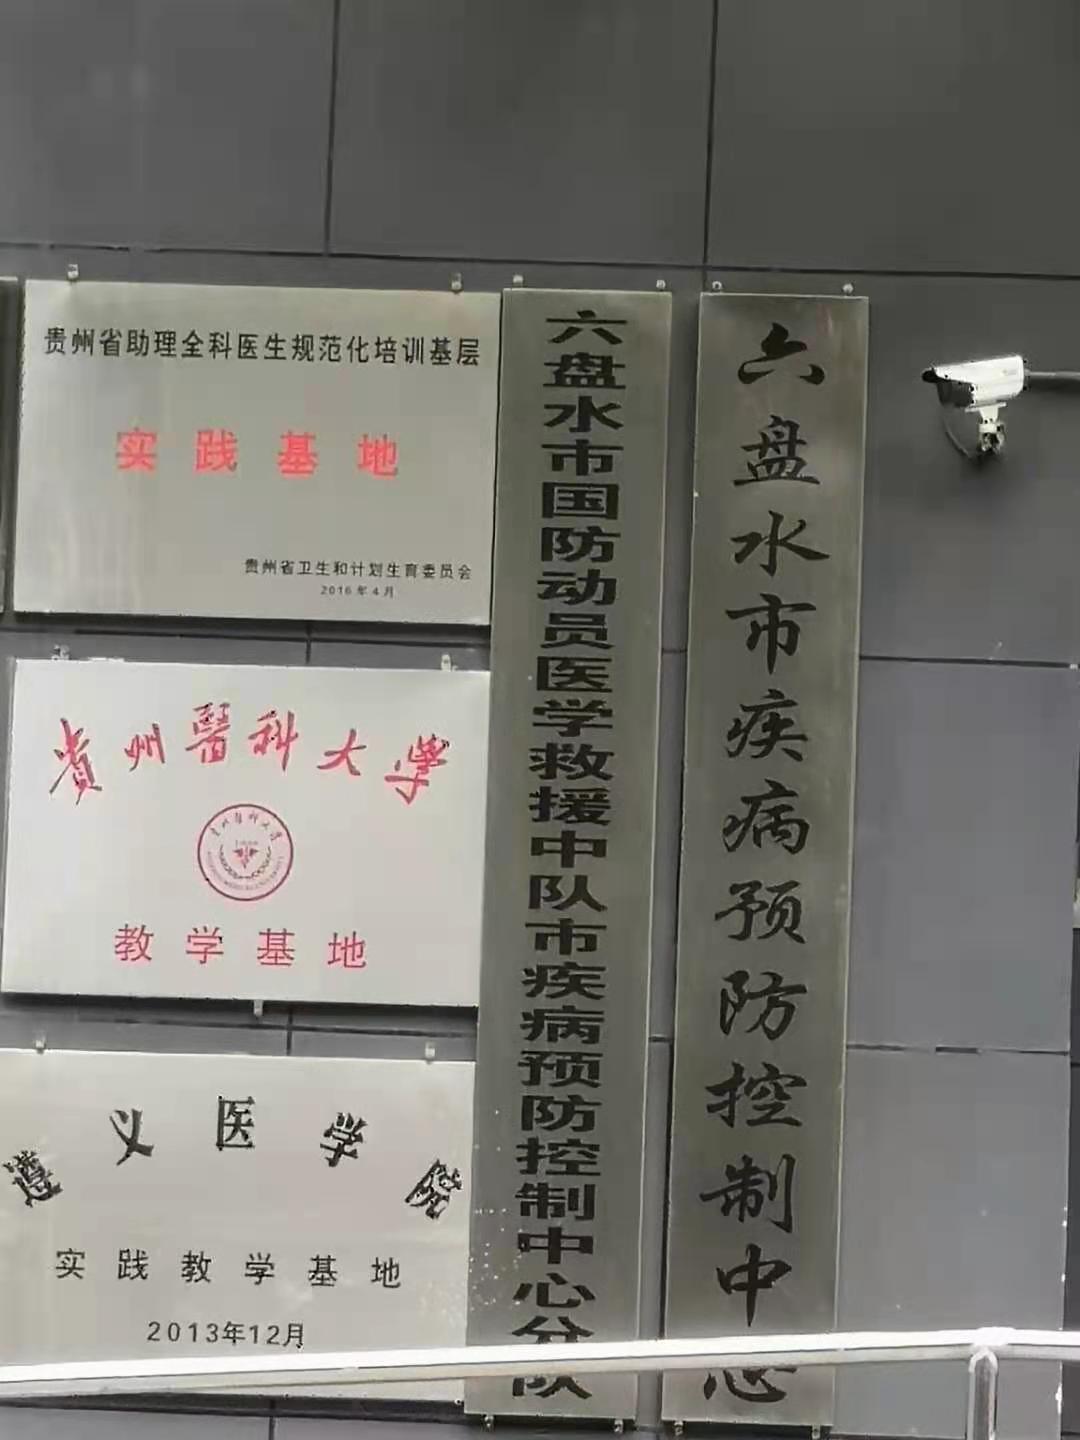 贵州省助理全科医生规范化培训基层
实践基地
贵州省卫生和计划生育委员会
2016年4月
贵州醫科大学
贵州醫科大学
教学基地
遵义医学院
实践教学基地
2013年12月
六盘水市国防动员医学救援中队市疾病预防控制中心分队
六盘水市疾病预防控制中心